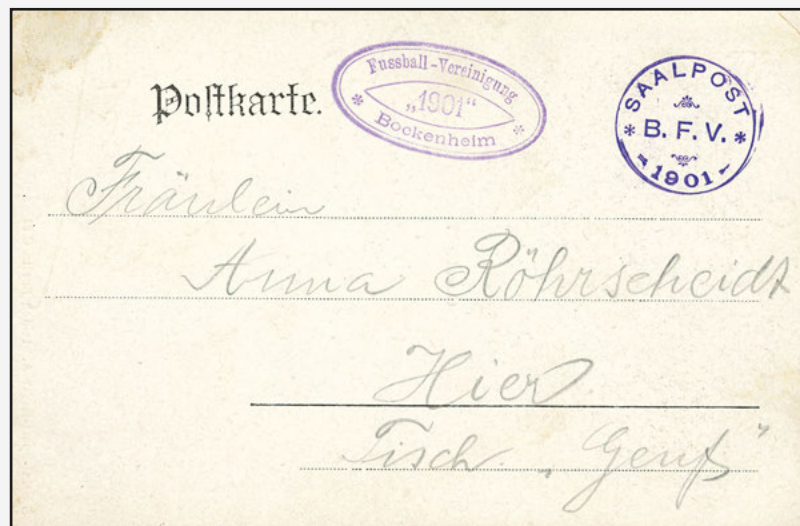 Postkarte.
Fussball-Vereinigung
„1901“
* Bockenheim *
SAALPOST
* B. F. V. *
1901
Fräulein
Anna Röhrscheidt
Hier
Tisch „Genf“